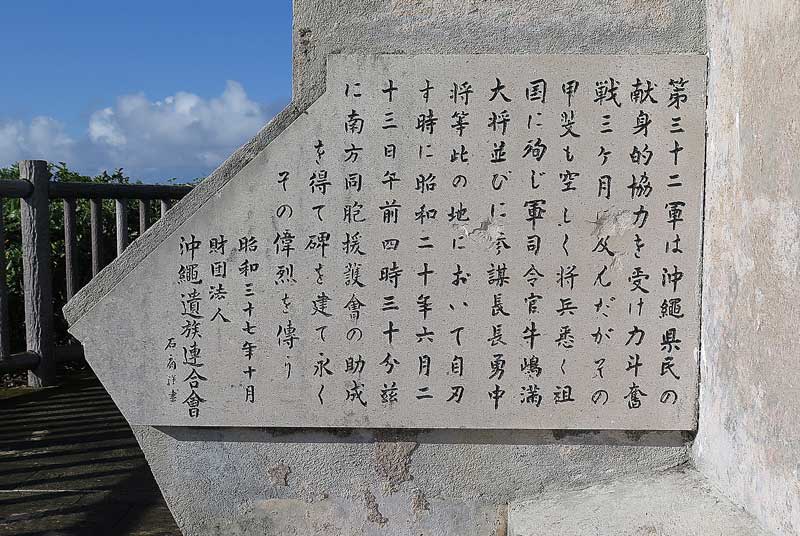 第三十二軍は沖繩県民の
献身的協力を受け力斗奮
戦三ヶ月 及んだがその
甲斐も空しく将兵悉く祖
国に殉じ軍司令官牛嶋満
大将並びに参謀長長勇中
将等此の地において自刃
す時に昭和二十年六月二
十三日午前四時三十分茲
に南方同胞援護會の助成
を得て碑を建て永く
その偉烈を傳う
昭和三十七年十月
財団法人
沖繩遺族連合會